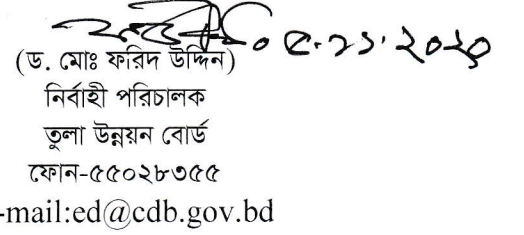 ৫.১১.২০২০
(ড. মোঃ ফরিদ উদ্দিন)
নির্বাহী পরিচালক
তুলা উন্নয়ন বোর্ড
ফোন-৫৫০২৮৩৫৫
-mail:ed@cdb.gov.bd